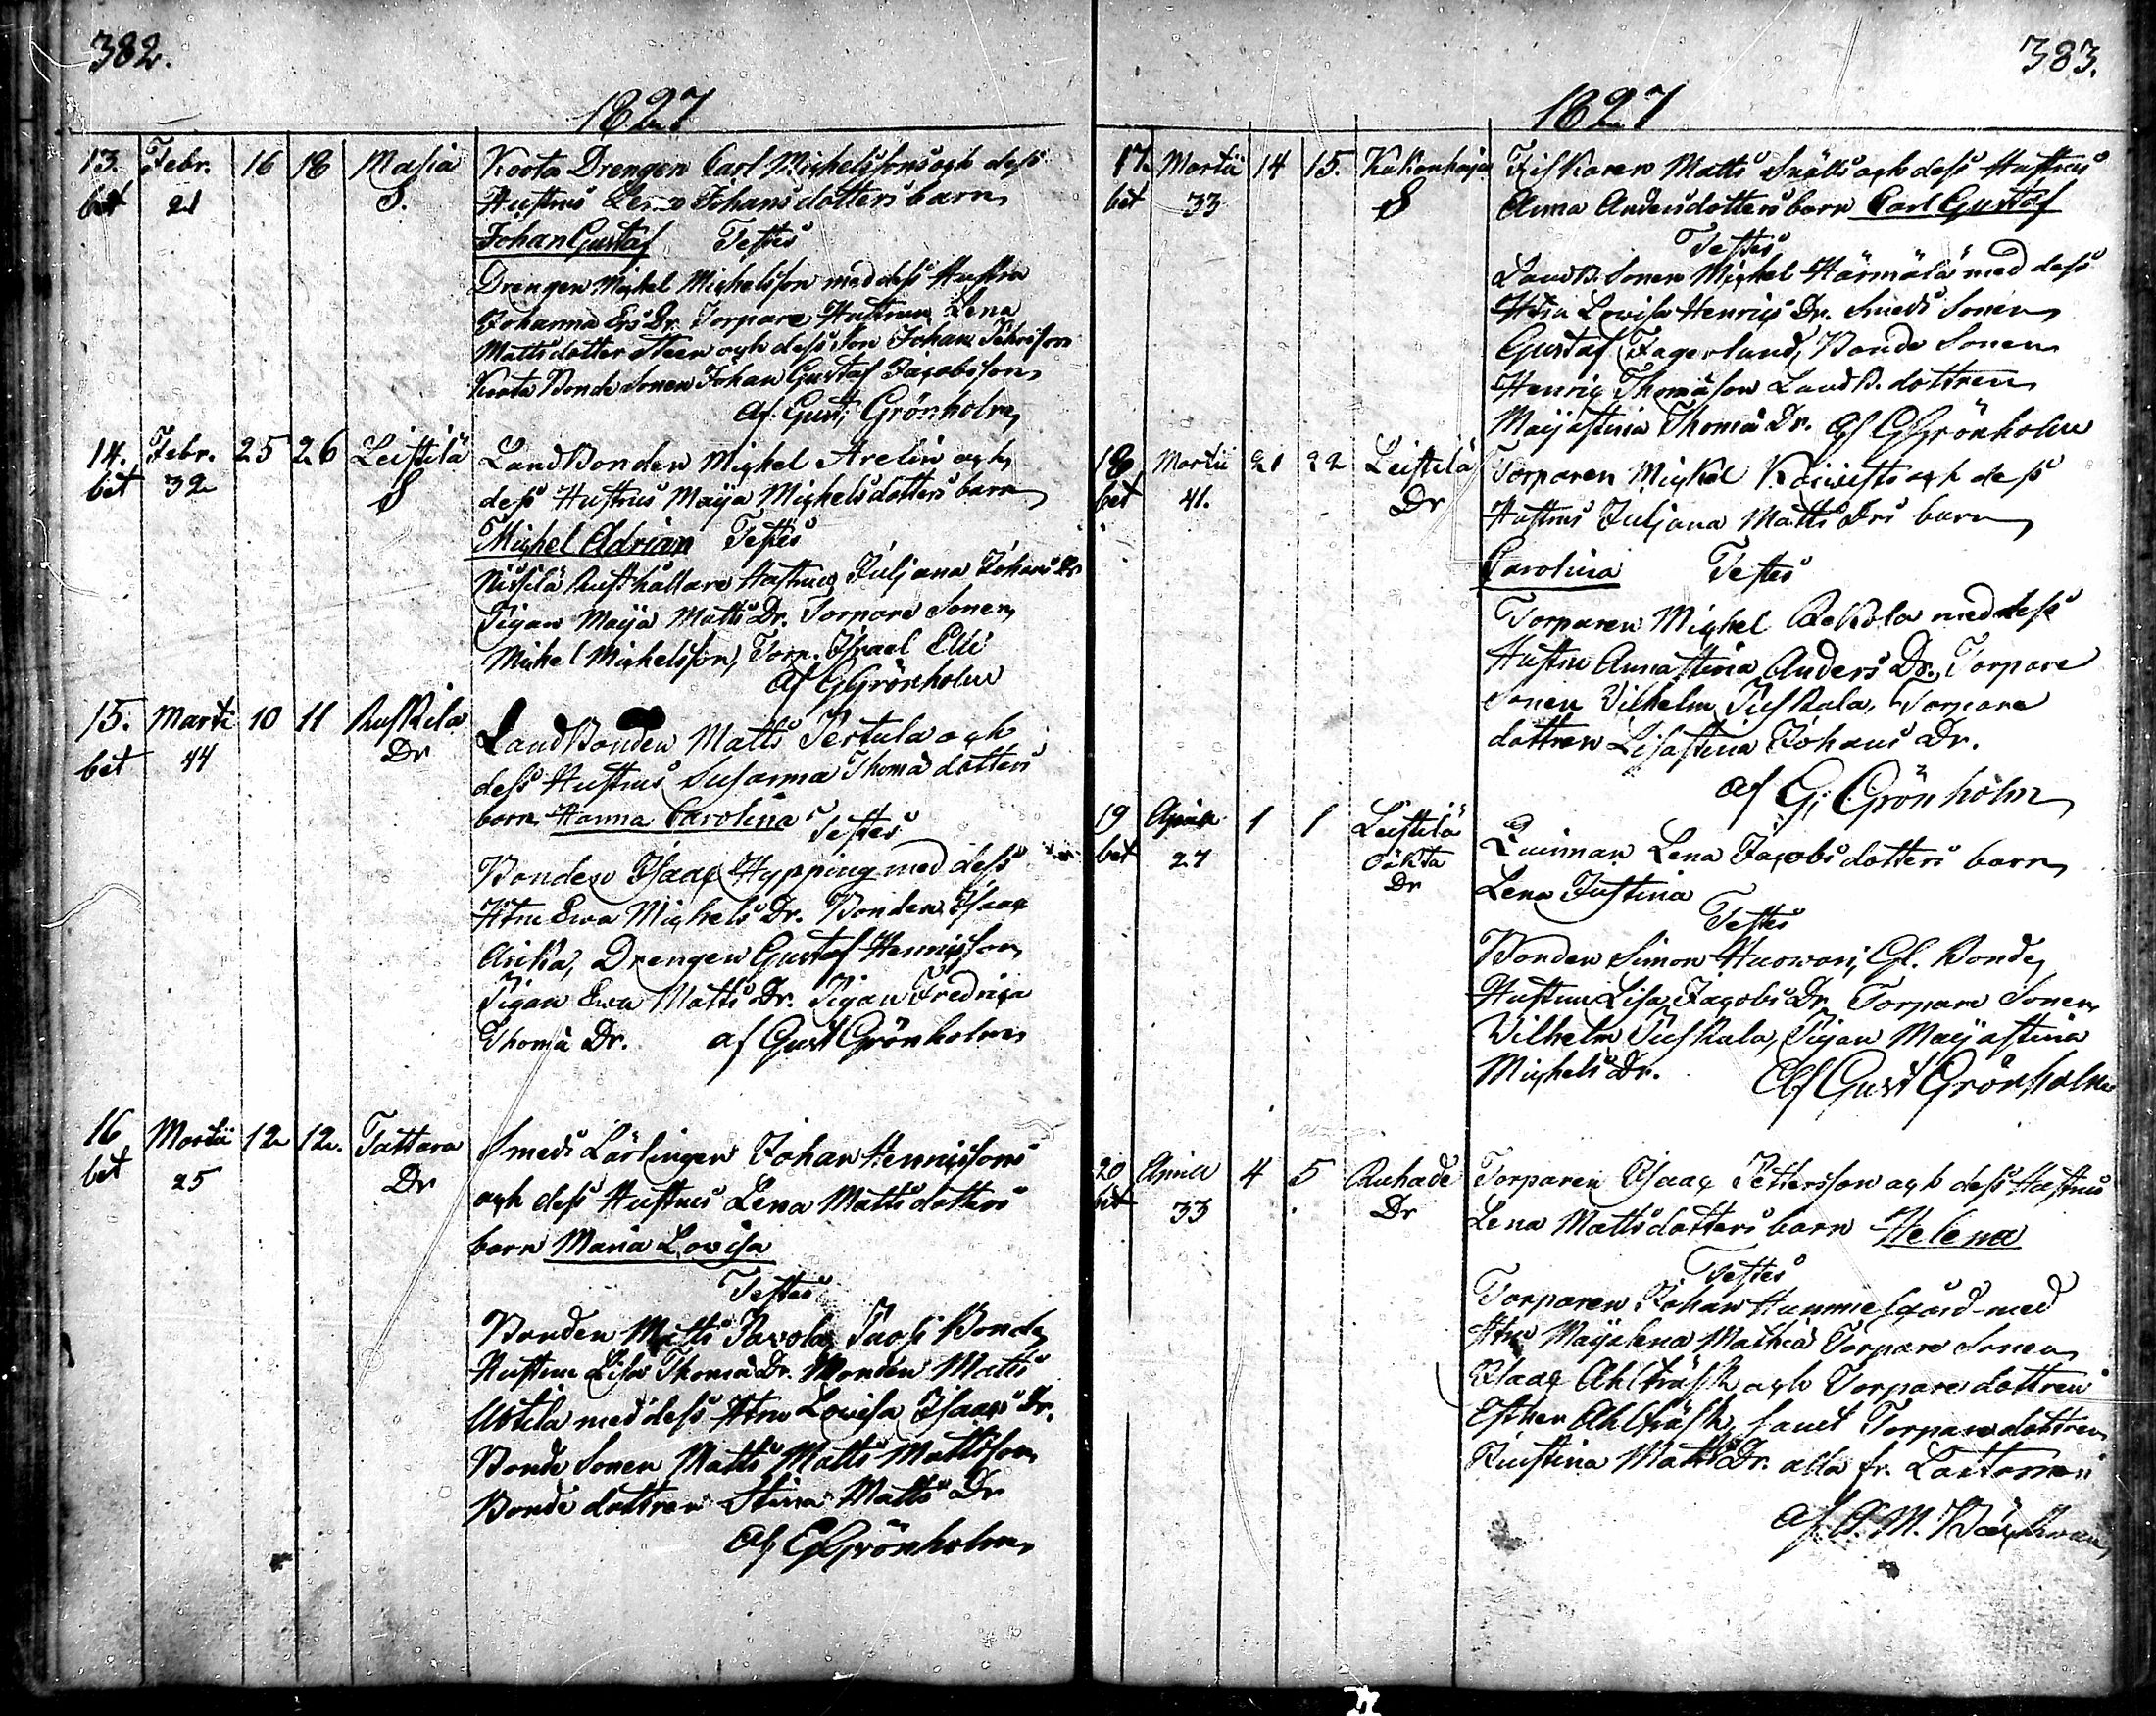 382.
1827
13. Febr. 16 18 Masia Koota Drengen Carl Michelssons och dess
bet 21 S. Hustrus Lena Johans dotters barn
Johan Gustaf Testes
Drengen Michel Michelsson med dess Hustru
Johanna Ers Dr. Torpare Hustrun Lena
Mattsdotter Steen och dess son Johan Johansson
Koota Bonde Sonen Johan Gustaf Jacobsson
af Gust: Grönholm
14. Febr. 25 26 Leistilä LandBonden Michel Arelin och
bet 32 S dess Hustrus Maija Michelsdotters barn
Michel Adrian Testes
Nissilä Rusthållare Hustrun Juljana Johans Dr
Pigan Maija Matts Dr. Torpare Sonen
Michel Michelsson, Torp. Israel Elli
af G Grönholm
15. Marti 10 11 Ruskila LandBonden Matts Pertula och
bet 44 Dr dess Hustrus Susanna Thomä dotters
barn Hanna Carolina Testes
Bonden Isaac Hypping med dess
Htru Ewa Michels Dr. Bonden Isaac
Arika, Drengen Gustaf Henricsson
Pigan Ewa Matts Dr. Pigan Fredrica
Thomä Dr. af Gust Grönholm
16 Martii 12 12. Tattara Smeds Lärlingen Johan Henricssons
bet 25 Dr och dess Hustrus Lena Matts dotters
barn Maria Lovisa
Testes
Bonden Matts Pavola, Bonde
Hustrun Lisa Thomä Dr. Bonden Matts
Uotila med dess Htru Lovisa Isaacs Dr.
Bonde Sonen Matts Matts Mattsson
Bonde dottren Stina Matts Dr
af G Grönholm
383.
1827
17. Martii 14 15. Kukonharja Fiskaren Matts Snälls och dess Hustrus
bet 33 S Anna Andersdotters barn Carl Gustaf
Testes
LandB. Sonen Michel Härmälä med dess
Htru Lovisa Henrics Dr. Smeds Sonen
Gustaf Fagerlund, Bonde Sonen
Henric Thomäson LandB. dottren
Maijastina Thomä Dr. af G Grönholm
18 Martii 21 22 Leistilä Torparen Michel Koivisto och dess
bet 41. Dr Hustrus Juljana Matts Drs barn
Carolina Testes
Torparen Michel Rekola med dess
Hustru Annastina Anders Dr., Torpare
Sonen Vilhelm Juskala, Torpare
dottren Lisastina Johans Dr.
af G: Grönholm
19 April 1 1 Leistilä Quinnan Lena Jacobs dotters barn
bet 27 Oäkta Lena Justina
Dr Testes
Bonden Simon Huowari, Gl. Bonde
Hustrun Lisa Jacobs Dr. Torpare Sonen
Vilhelm Juskala, Pigan Maijastina
Michels Dr. Af Gust Grönholm
20 April 4 5 Ruhade Torparen Isaac Pettersson och dess Hustrus
bet 33 Dr Lena Matts dotters barn Helena
Testes
Torparen Johan Hammelgård med
Htru Maijalena Mathiä Torpare Sonen
Isaac Ahlträsk och Torpare dottren
Esther Ahlträsk, samt Torpare dottren
Kristina Matts Dr. alla fr. Lattomeri
af